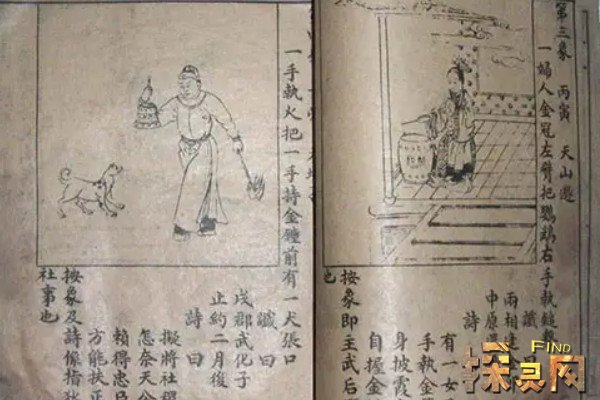 第三象 丙寅 天山遯
一婦人金冠左臂把鸚鵡右手執鎚
讖曰
兩相達
中原
詩
有一女
手執金
身披霞
自握金
按象即主武后
也
一手執火把一手持金鐘前有一犬張口
讖曰
戌郡武化子
止約二月後
詩曰
擬將社稷
怎奈天公
賴得忠
方能扶正
按象及詩像指
社事也
FIND
探灵网